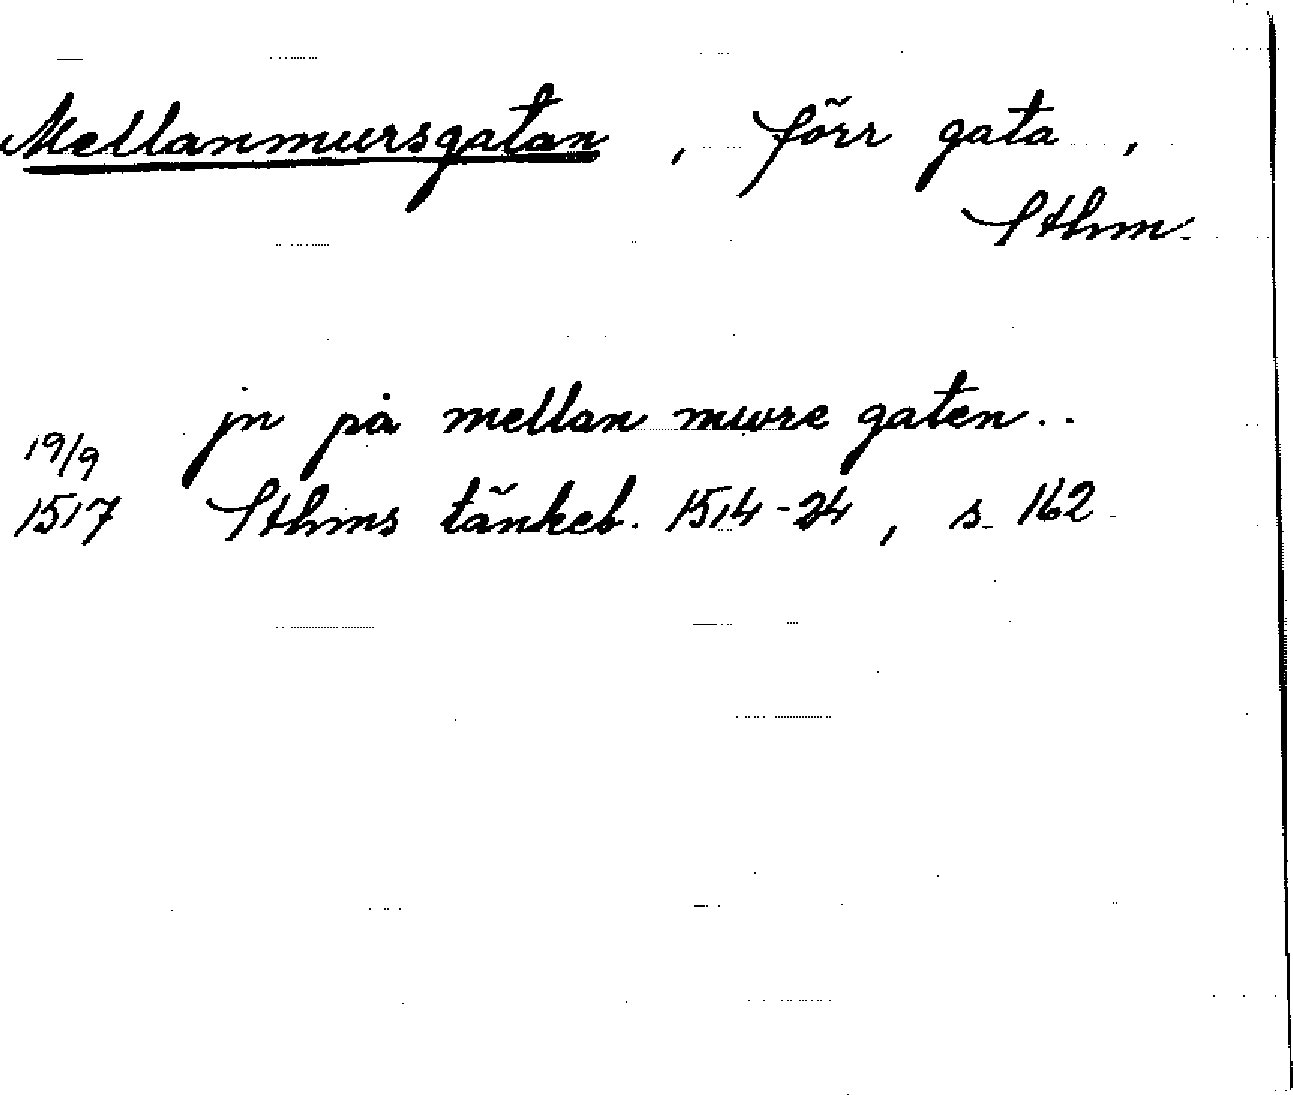 Mellanmursgatan, förr gata,
Sthm.
jn på mellan mwre gaten..
19/9
1517 Sthms tänkeb. 1514-24, s. 162